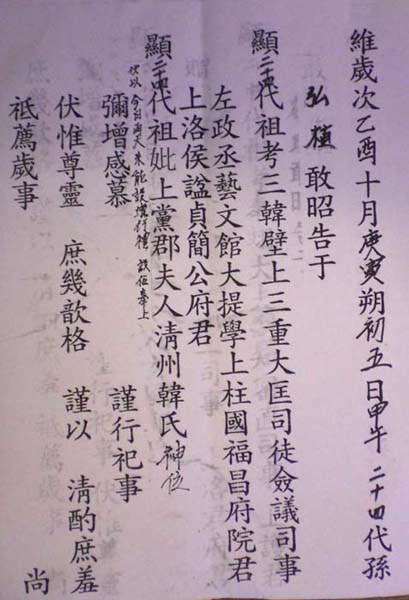 維歲次乙酉十月庚寅朔初五日甲午 二十四代孫
弘植 敢昭告于
顯二十四代祖考三韓壁上三重大匡司徒僉議司事
左政丞藝文館大提學上柱國福昌府院君
上洛侯諡貞簡公府君
顯二十四代祖妣上黨郡夫人淸州韓氏神位
伏以 今日雨天 未能設壇行禮 設位奉上
彌增感慕 謹行祀事
伏惟尊靈 庶幾歆格 謹以 淸酌庶羞
祗薦歲事 尚